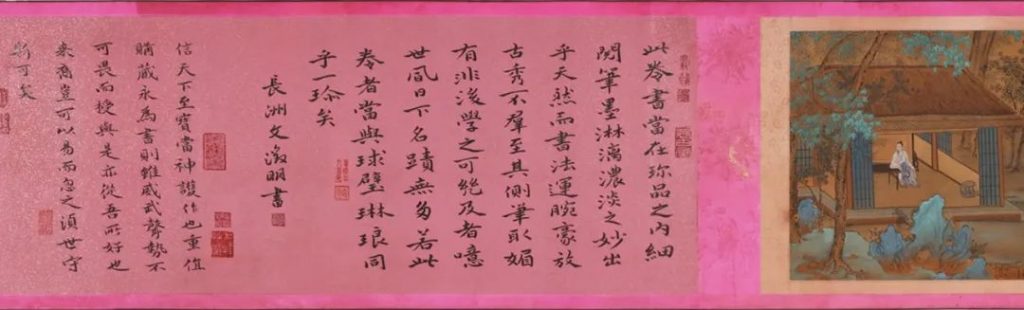 此卷書當在珍品之內細
閱筆墨淋漓濃淡之妙出
乎天然而書法運腕豪放
古秀不羣至其側筆取媚
有非後學之可能及者噫
世風日下名蹟無多若此
卷者當與球璧琳琅同
乎一珍矣
長洲文徵明書
信天下至寶當神護也重值
購藏永為書則雖威武聲勢不
可畏而與是亦從吾所好也
來裔豈可以易而忽之須世守
斯可矣